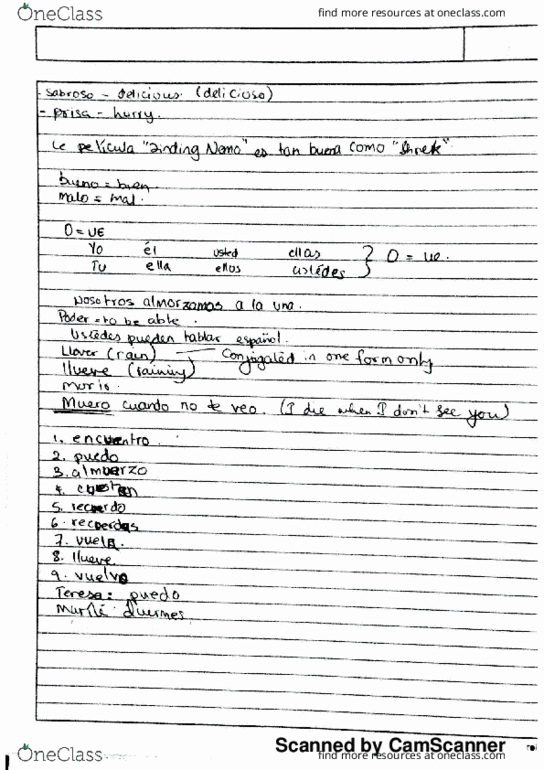 OneClass
find more resources at oneclass.com
- sabroso - delicious. (delicioso)
- prisa - hurry.
Le película "Finding Nemo" es tan buena como "Shrek".
bueno = bien.
malo = mal.
O = UE
Yo él usted ellas } O = ue.
Tu ella ellos ustedes
Nosotros almorzamos a la una.
Poder = to be able.
Ustedes pueden hablar español.
Llover (rain) Conjugated in one form only
llueve (raining)
Morir.
Muero cuando no te veo. (I die when I don't see you)
1. encuentro.
2. puedo
3. almuerzo
4. cuestan
5. recuerdo
6. recuerdas
7. vuela.
8. llueve
9. vuelvo
Teresa: puedo
duermes
Scanned by CamScanner
OneClass
find more resources at oneclass.com